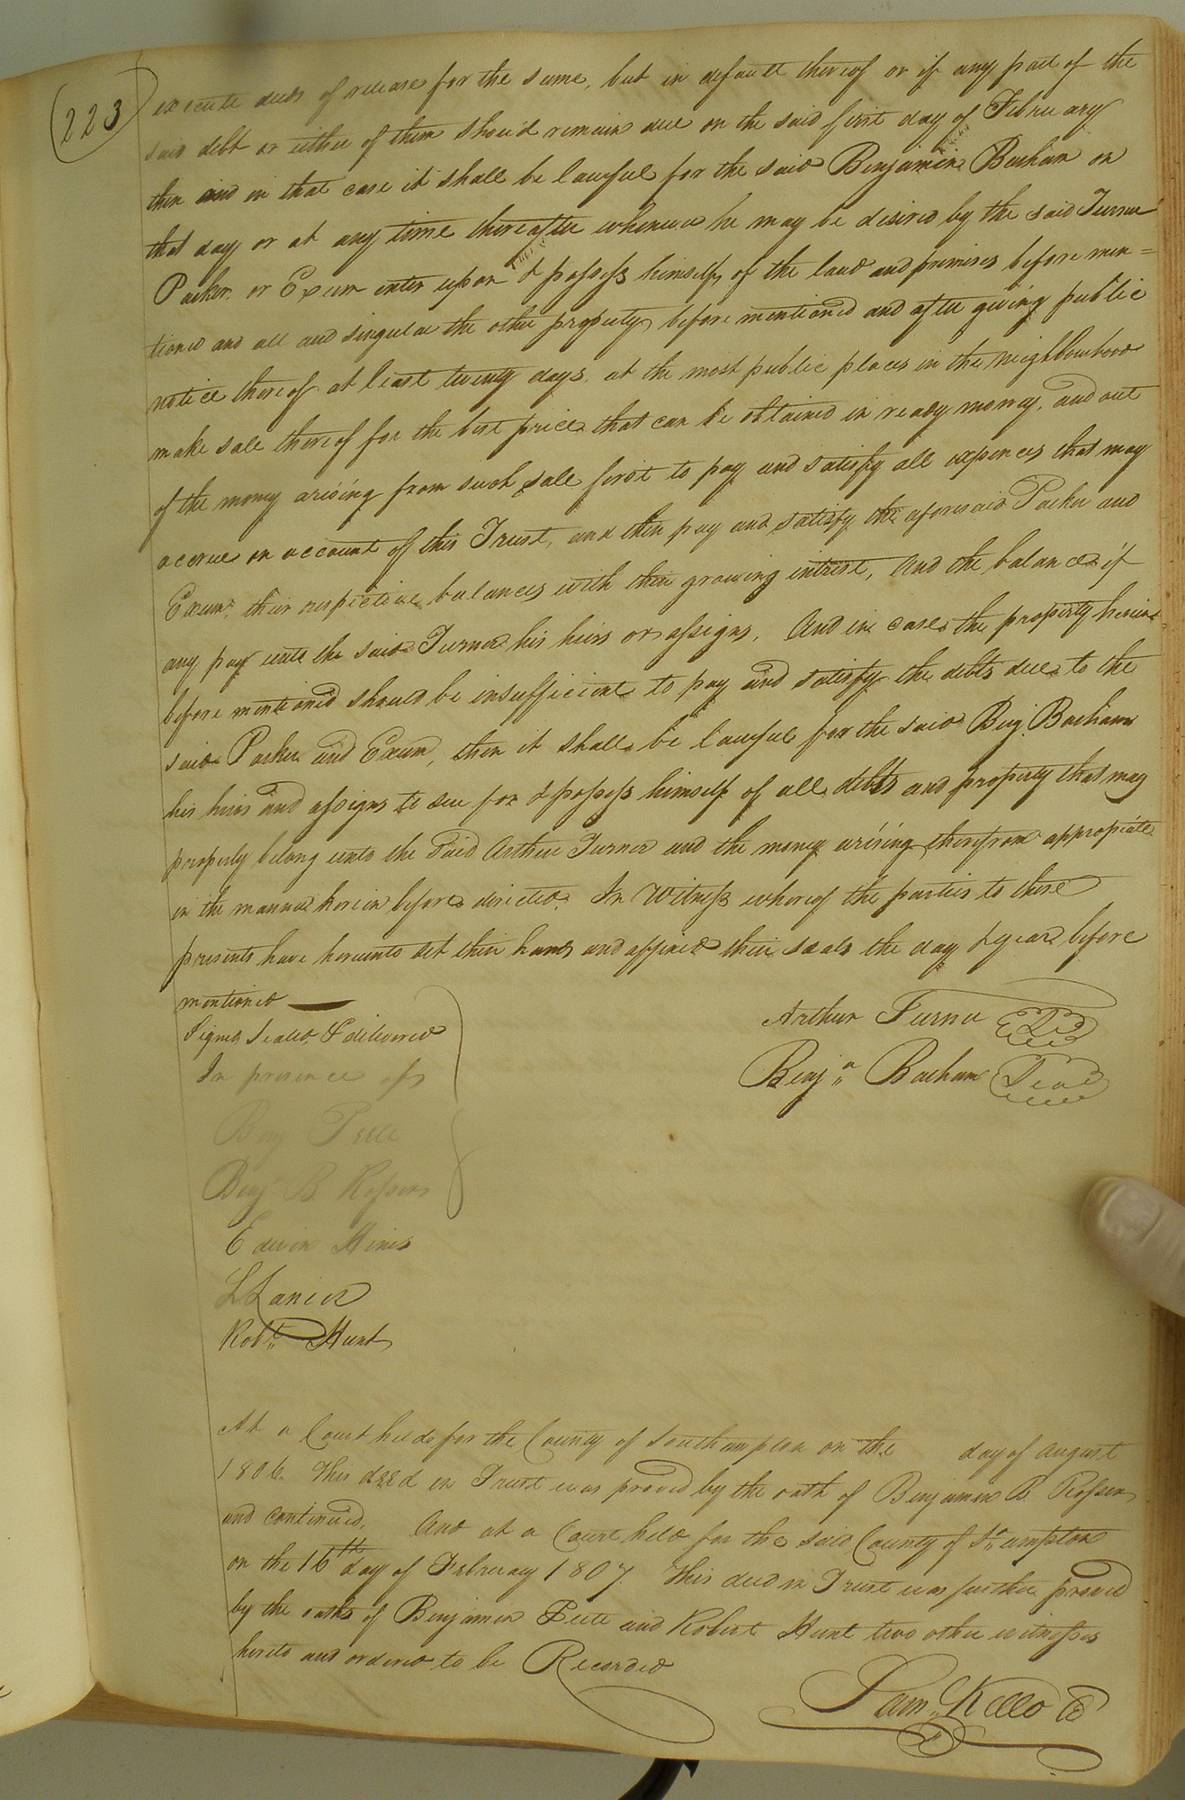 223
execute deeds of release for the same, but in default thereof or if any part of the
said debt or either of them should remain due on the said first day of February
then and in that case it shall be lawful for the said Benjamin Barham on
that day or at any time thereafter whenever he may be desired by the said Turner
Parker or Exum enter upon & possess himself of the land and premises before men=
tioned and all and singular the other property before mentioned and after giving public
notice thereof at least twenty days at the most public places in the neighbourhood
make sale thereof for the best price that can be obtained in ready money, and out
of the money arising from such sale first to pay and satisfy all expences that may
accrue on account of this Trust, and then pay and satisfy the aforesaid Parker and
Exum their respective balances with their growing intrest, And the balance if
any pay unto the said Turner his heirs or assigns, And in case the property herein
before mentioned should be insufficient to pay and satisfy the debts due to the
said Parker and Exum, then it shall be lawful for the said Benj Barham
his heirs and assigns to sue for & possess himself of all debts and property that may
properly belong unto the Said Arthur Turner and the money arising therefrom appropiate
in the manner herein before directed. In Witness whereof the parties to these
presents have hereunto set their hands and affixed their seals the day & year before
mentioned
Arthur Turner Seal
Signed Sealed & delivered
In presence of
Benjn Barham Seal
Benj Peete
Benj B. Rosser
Edwin Hines
L Lanier
Robt. Hunt
At a Court held for the County of Southampton on the day of August
1806. This deed in Trust was proved by the oath of Benjamin B. Rosser
and continued. And at a Court held for the said County of So.ampton
on the 16th day of February 1807. This deed in Trust was further proved
by the oaths of Benjamin Peete and Robert Hunt two other witnesses
hereto and ordered to be Recorded
Sam. Kello C